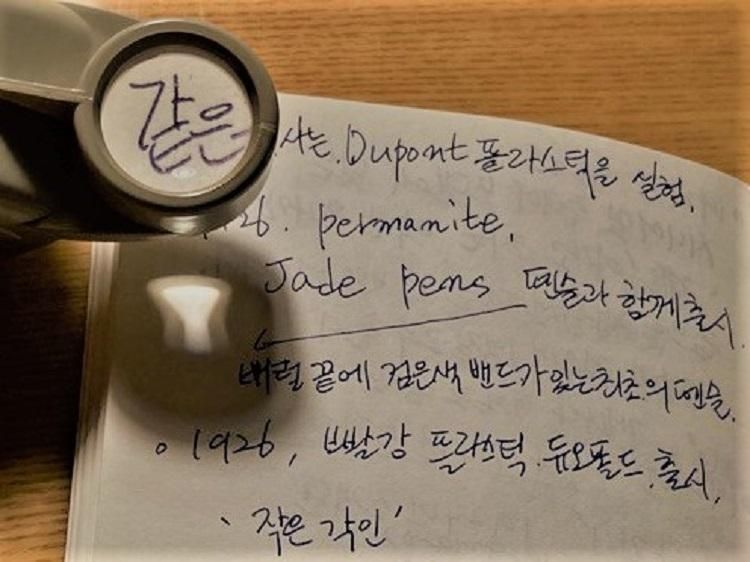 같은 사는. Dupont 플라스틱을 실험.
26. permanite,
Jade pens 펜슬과 함께 출시.
배럴 끝에 검은색 밴드가 있는 최초의 펜슬.
1926, 빨강 플라스틱. 듀오폴드. 출시,
' 작은 각인 '